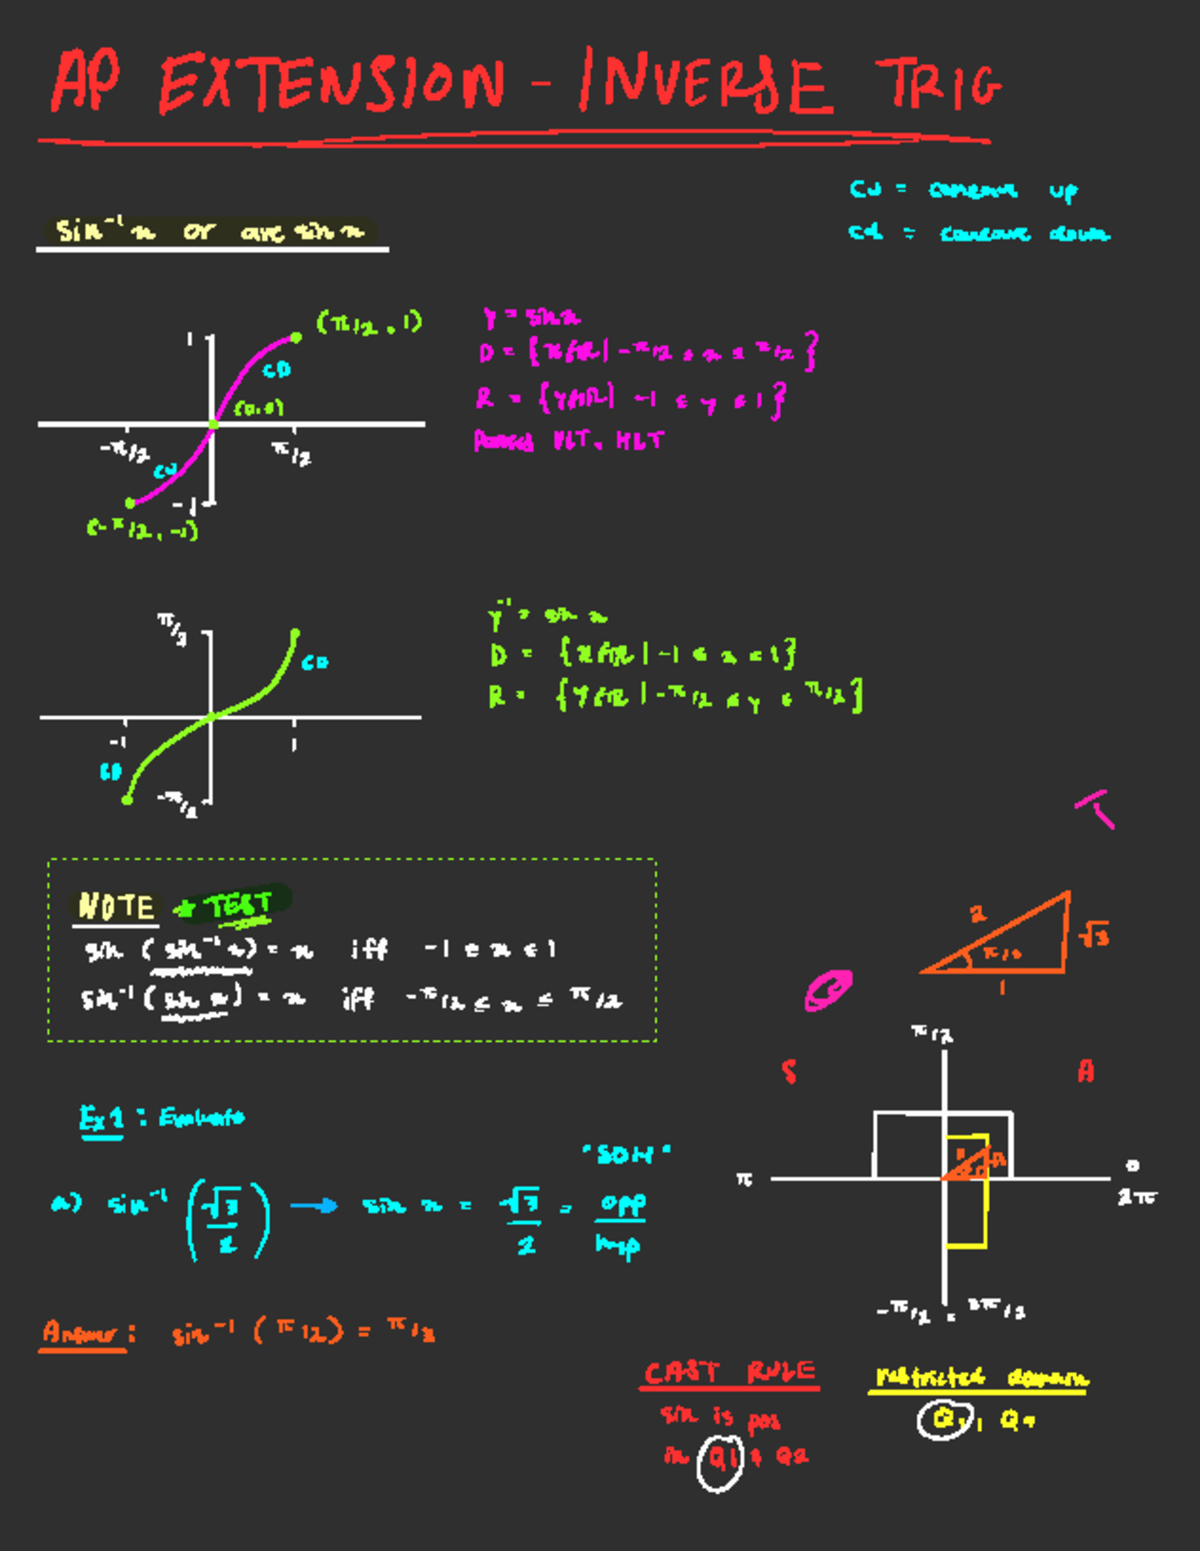 AP EXTENSION - INVERSE TRIG
CU = concave up
cd = concave down
sin⁻¹x or arc sin x
(π/2, 1)
1
CD
(0,0)
-π/2
π/2
CU
-1
(-π/2, -1)
y = sin x
D = {x∈ℝ | -π/2 ≤ x ≤ π/2}
R = {y∈ℝ | -1 ≤ y ≤ 1}
Passed VLT, HLT
π/2
CD
-1
1
CD
-π/2
y⁻¹ = sin x
D = {x∈ℝ | -1 ≤ x ≤ 1}
R = {y∈ℝ | -π/2 ≤ y ≤ π/2}
NOTE * TEST
sin (sin⁻¹ x) = x iff -1 ≤ x ≤ 1
sin⁻¹ (sin x) = x iff -π/2 ≤ x ≤ π/2
2
√3
π/3
1
π/2
S
A
π
0
2π
-π/2, 3π/2
Ex1: Evaluate
"SOH"
a) sin⁻¹ (√3/2) → sin x = √3/2 = opp/hyp
Answer: sin⁻¹ (π/2) = π/3
CAST RULE
sin is pos
in Q1 & Q2
restricted domain
Q1, Q4